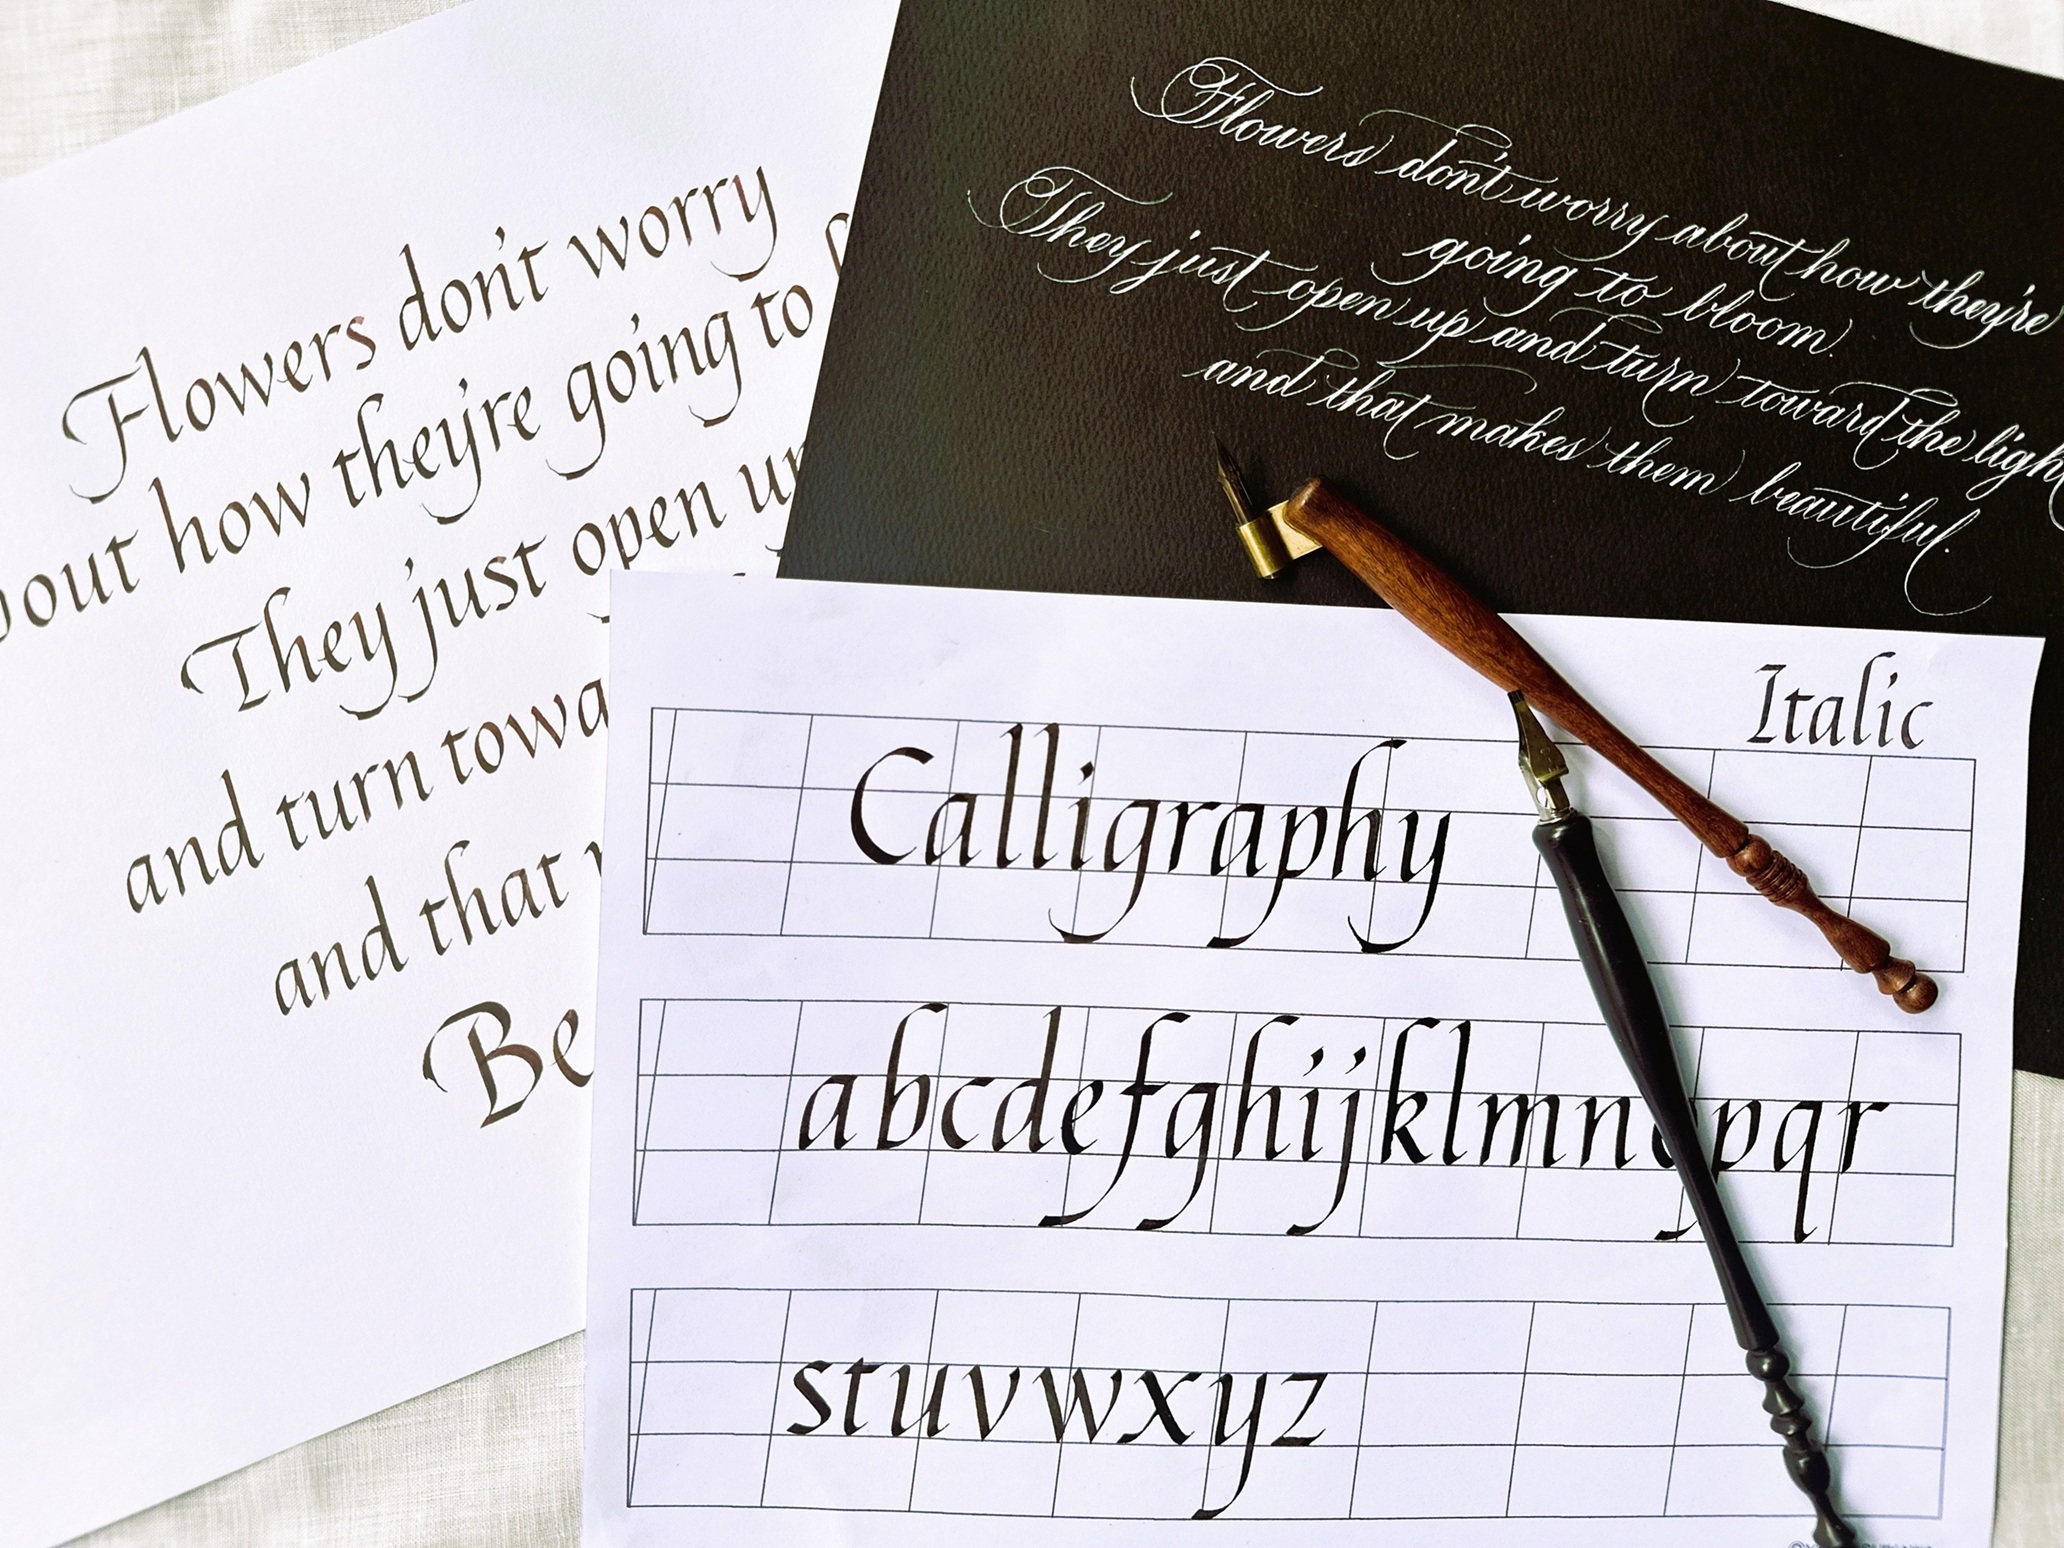 Flowers don't worry
about how they're going to
They just open up
and turn
and that
Be
Flowers don't worry about how they're
going to bloom.
They just open up and turn toward the light
and that makes them beautiful.
Italic
Calligraphy
abcdefghijklmnopqr
stuvwxyz